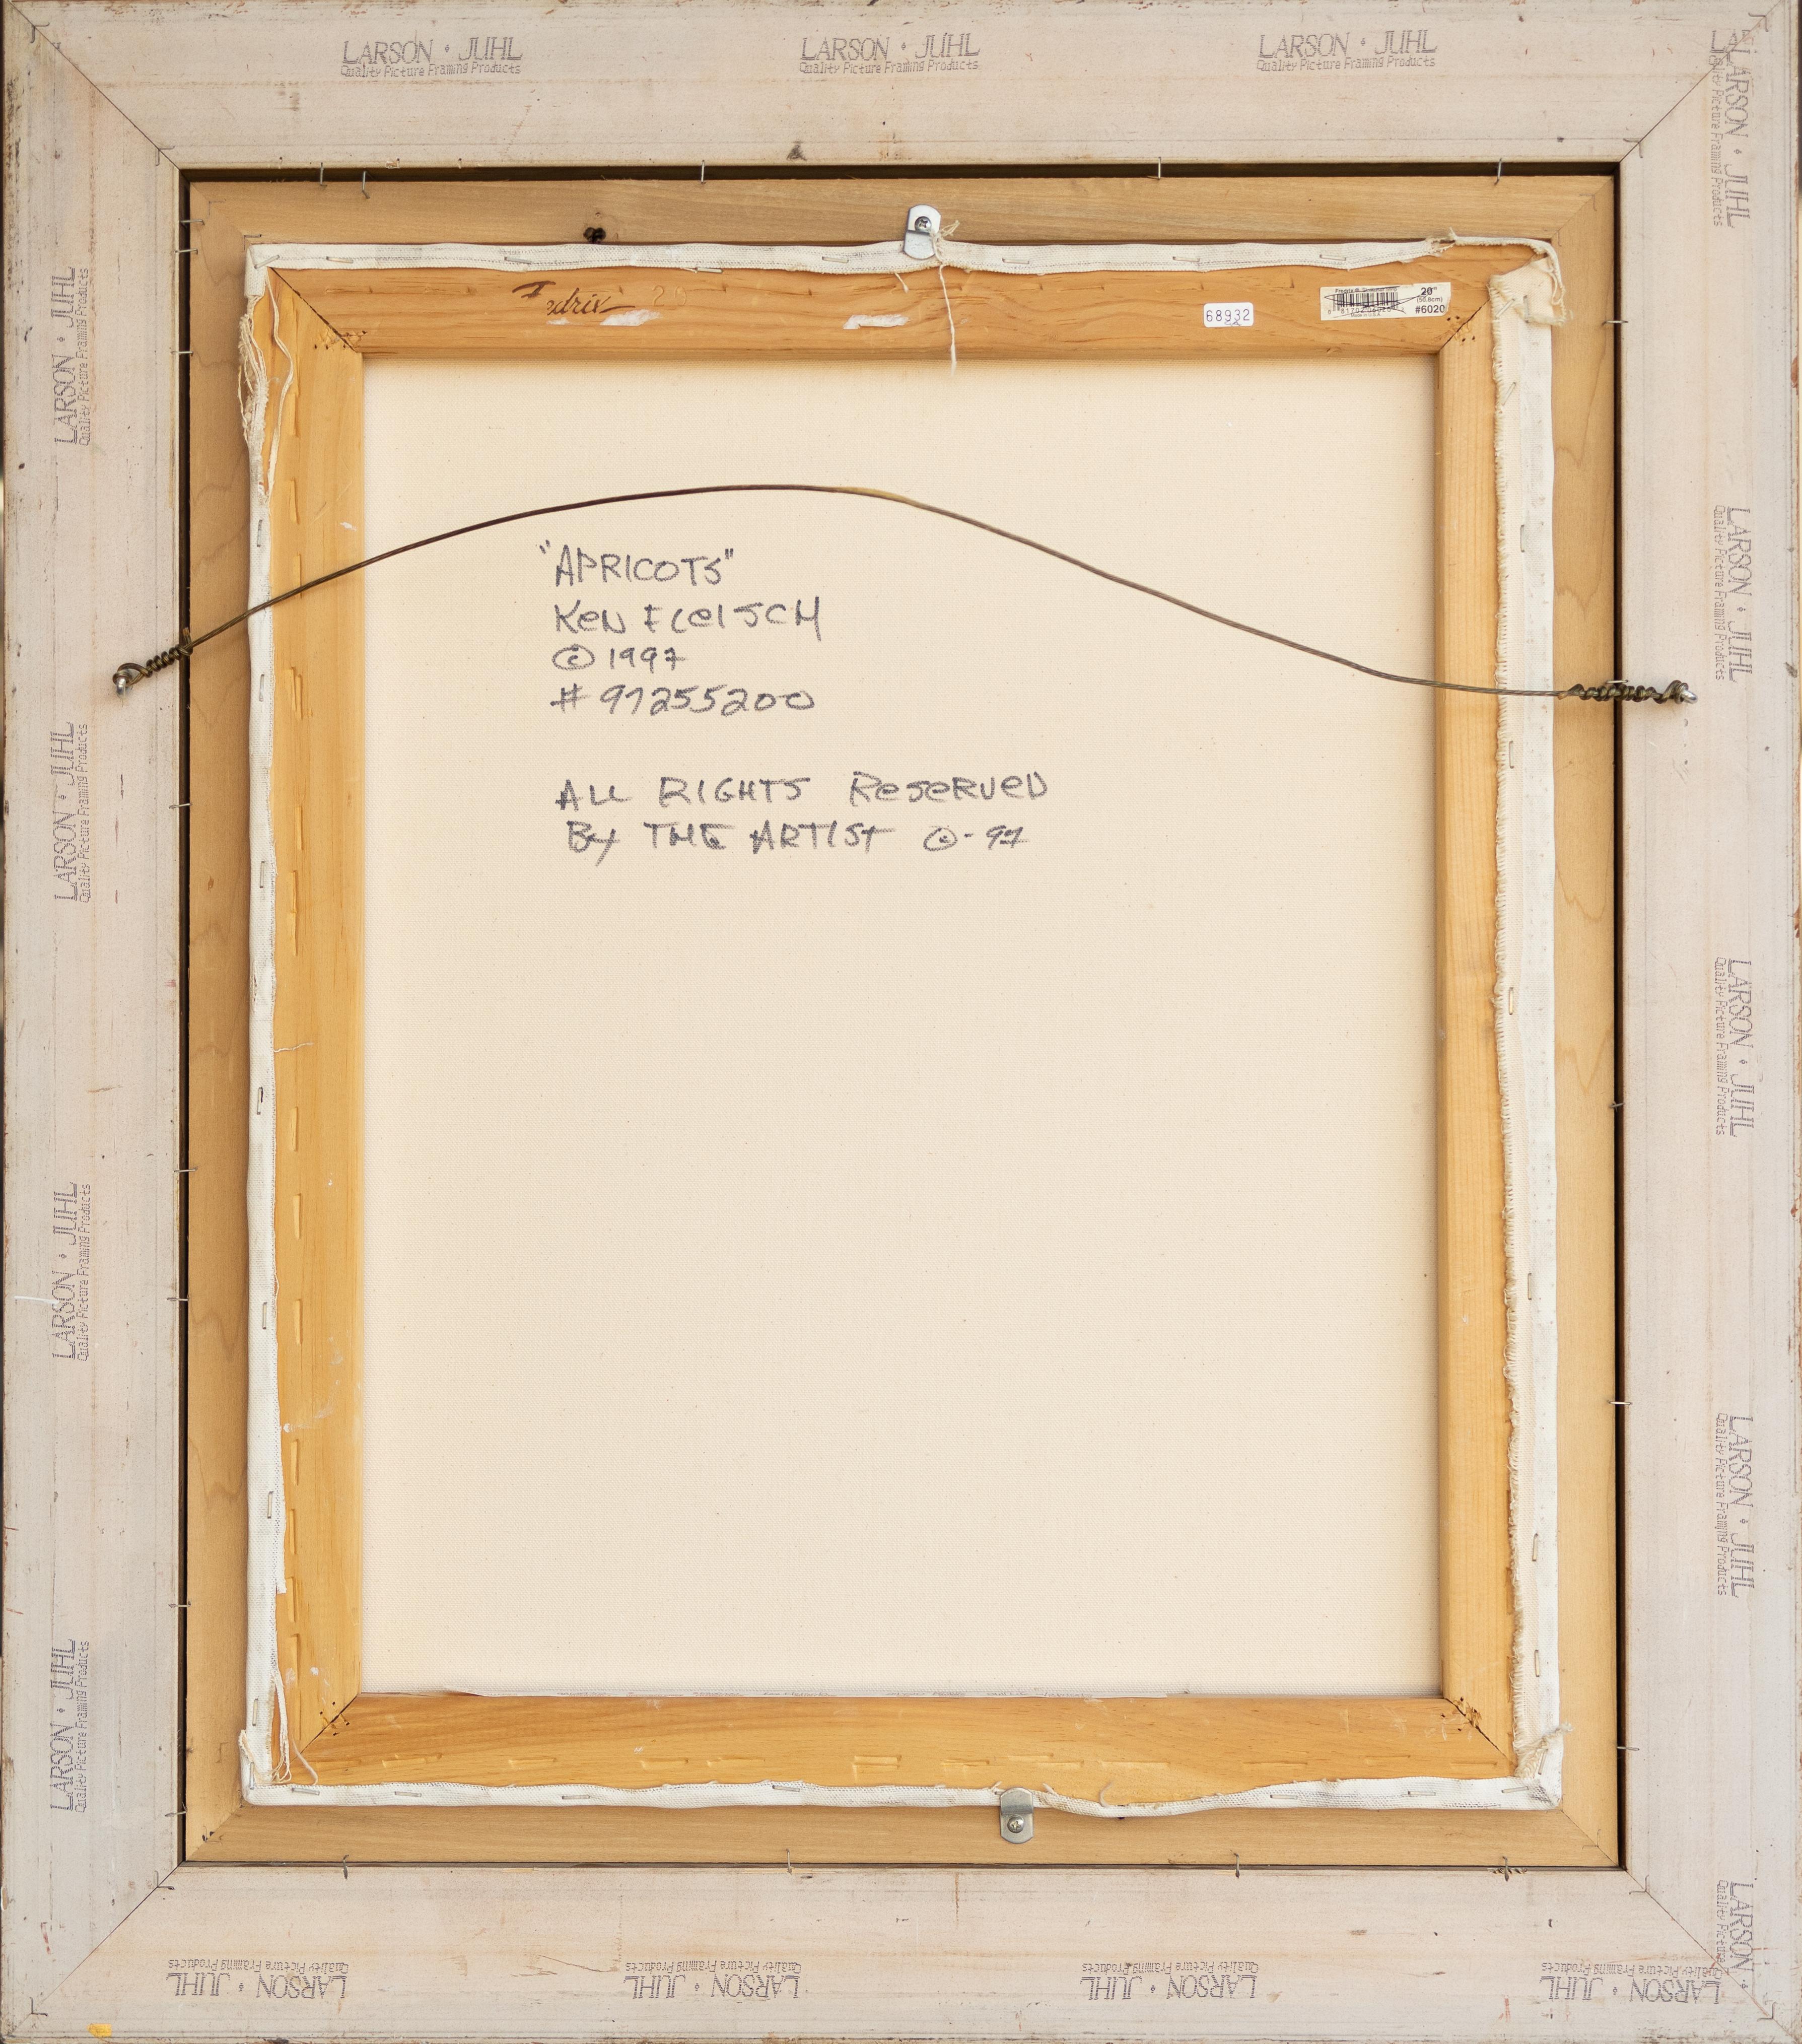 LARSON • JUHL LARSON • JUHL LARSON • JUHL
Quality Picture Framing Products Quality Picture Framing Products Quality Picture Framing Products
LARSON • JUHL
Quality Picture Framing Products
LARSON • JUHL
Quality Picture Framing Products
LARSON • JUHL
Quality Picture Framing Products
LARSON • JUHL
Quality Picture Framing Products
68932
20"
#6020
"APRICOTS"
Ken FleISCH
© 1997
# 97255200
ALL RIGHTS ReseRveD
By THE ARTIST ©-97
LARSON • JUHL
Quality Picture Framing Products
LARSON • JUHL
Quality Picture Framing Products
LARSON • JUHL
Quality Picture Framing Products
LARSON • JUHL
Quality Picture Framing Products
LARSON •
Quality Picture
LARSON • JUHL
Quality Picture Framing Products
LARSON • JUHL
Quality Picture Framing Products
LARSON • JUHL
Quality Picture Framing Products
LARSON • JUHL
Quality Picture Framing Products